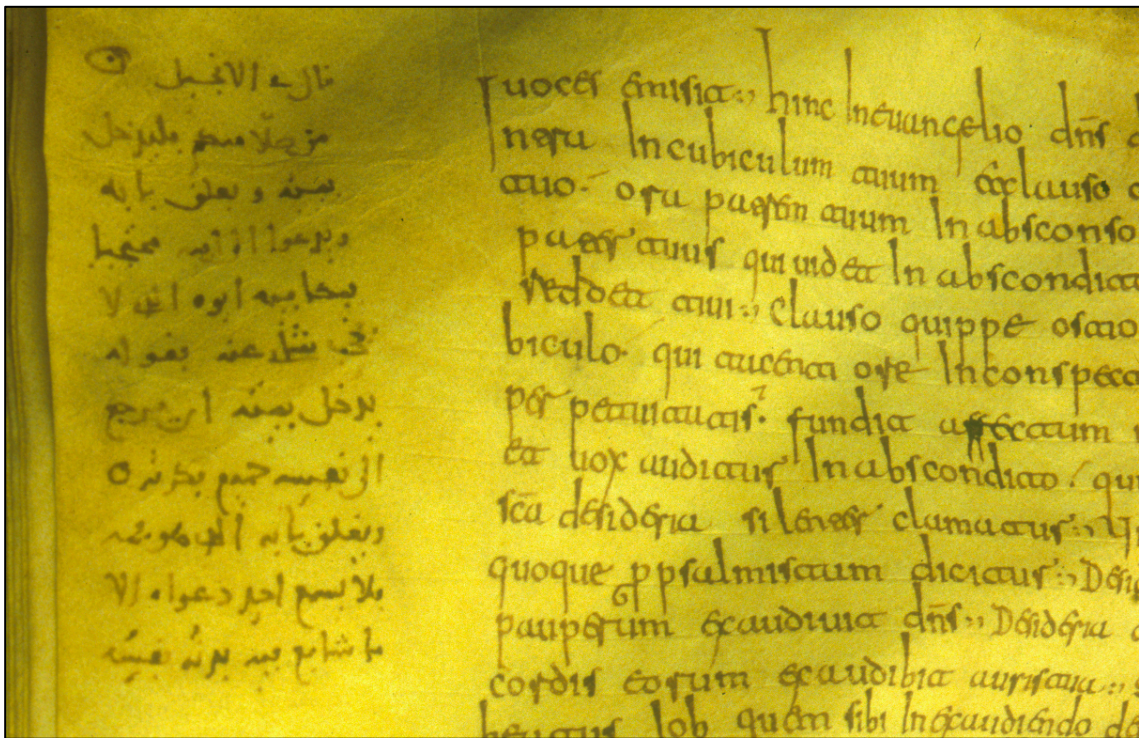 قال في الانجيل
من صلا منكم فليدخل
بيته ويغلق بابه
ويدعوا
ابوه الذي لا
يخفى عنه بقوله
يدخل بيته اي يرجع
الى نفسه
ويغلق بابه الذي هو فمه
فلا يسمع احد دعواه الا
ما نفسه
uoces emisit hinc In euangelio dñs d
Intra In cubiculum tuum et clauso o
tuo. ora patrem tuum In absconso
pater tuus qui uidet In abscondito
reddet tiui clauso quippe ostio
biculo. qui tacenti ore In conspect
per pietatis. fundit affectum
et uox auditur In abscondito. qu
sc̄a desideria silenter clamatur
quoque p psalmistam dicitur Desi
pauperum exaudiuit dñs Desideria
cordis eorum exaudibit auris tua
beatus Iob quem sibi In exaudiendo de